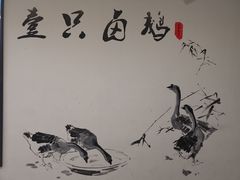 壹只卤鹅